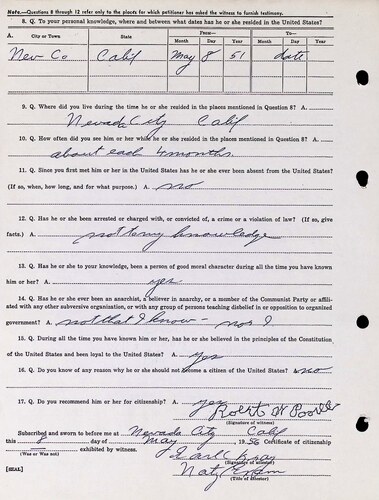 Note.—Questions 8 through 12 refer only to the places for which petitioner has asked the witness to furnish testimony.
8. Q. To your personal knowledge, where and between what dates has he or she resided in the United States?
A. City or Town State From— To—
Month Day Year Month Day Year
Nev Co Calif May 8 51 date
9. Q. Where did you live during the time he or she resided in the places mentioned in Question 8? A.
Nevada City Calif
10. Q. How often did you see him or her while he or she resided in the places mentioned in Question 8? A.
about each 4 months.
11. Q. Since you first met him or her in the United States has he or she ever been absent from the United States?
(If so, when, how long, and for what purpose.) A. no
12. Q. Has he or she been arrested or charged with, or convicted of, a crime or a violation of law? (If so, give
facts.) A. not to my knowledge
13. Q. Has he or she to your knowledge, been a person of good moral character during all the time you have known
him or her? A. yes
14. Q. Has he or she ever been an anarchist, a believer in anarchy, or a member of the Communist Party or affili-
ated with any other subversive organization, or with any group of persons teaching disbelief in or opposition to organized
government? A. not that I know - nor I
15. Q. During all the time you have known him or her, has he or she believed in the principles of the Constitution
of the United States and been loyal to the United States? A. yes
16. Q. Do you know of any reason why he or she should not become a citizen of the United States? no
17. Q. Do you recommend him or her for citizenship? A. yes
Robert W
(Signature of witness)
Subscribed and sworn to before me at Nevada City Calif
this 8 day of May, 1956 Certificate of citizenship
exhibited by witness. Earl
(Was or Was not) (Signature of officer)
[SEAL] Natz Exam
(Title of officer)